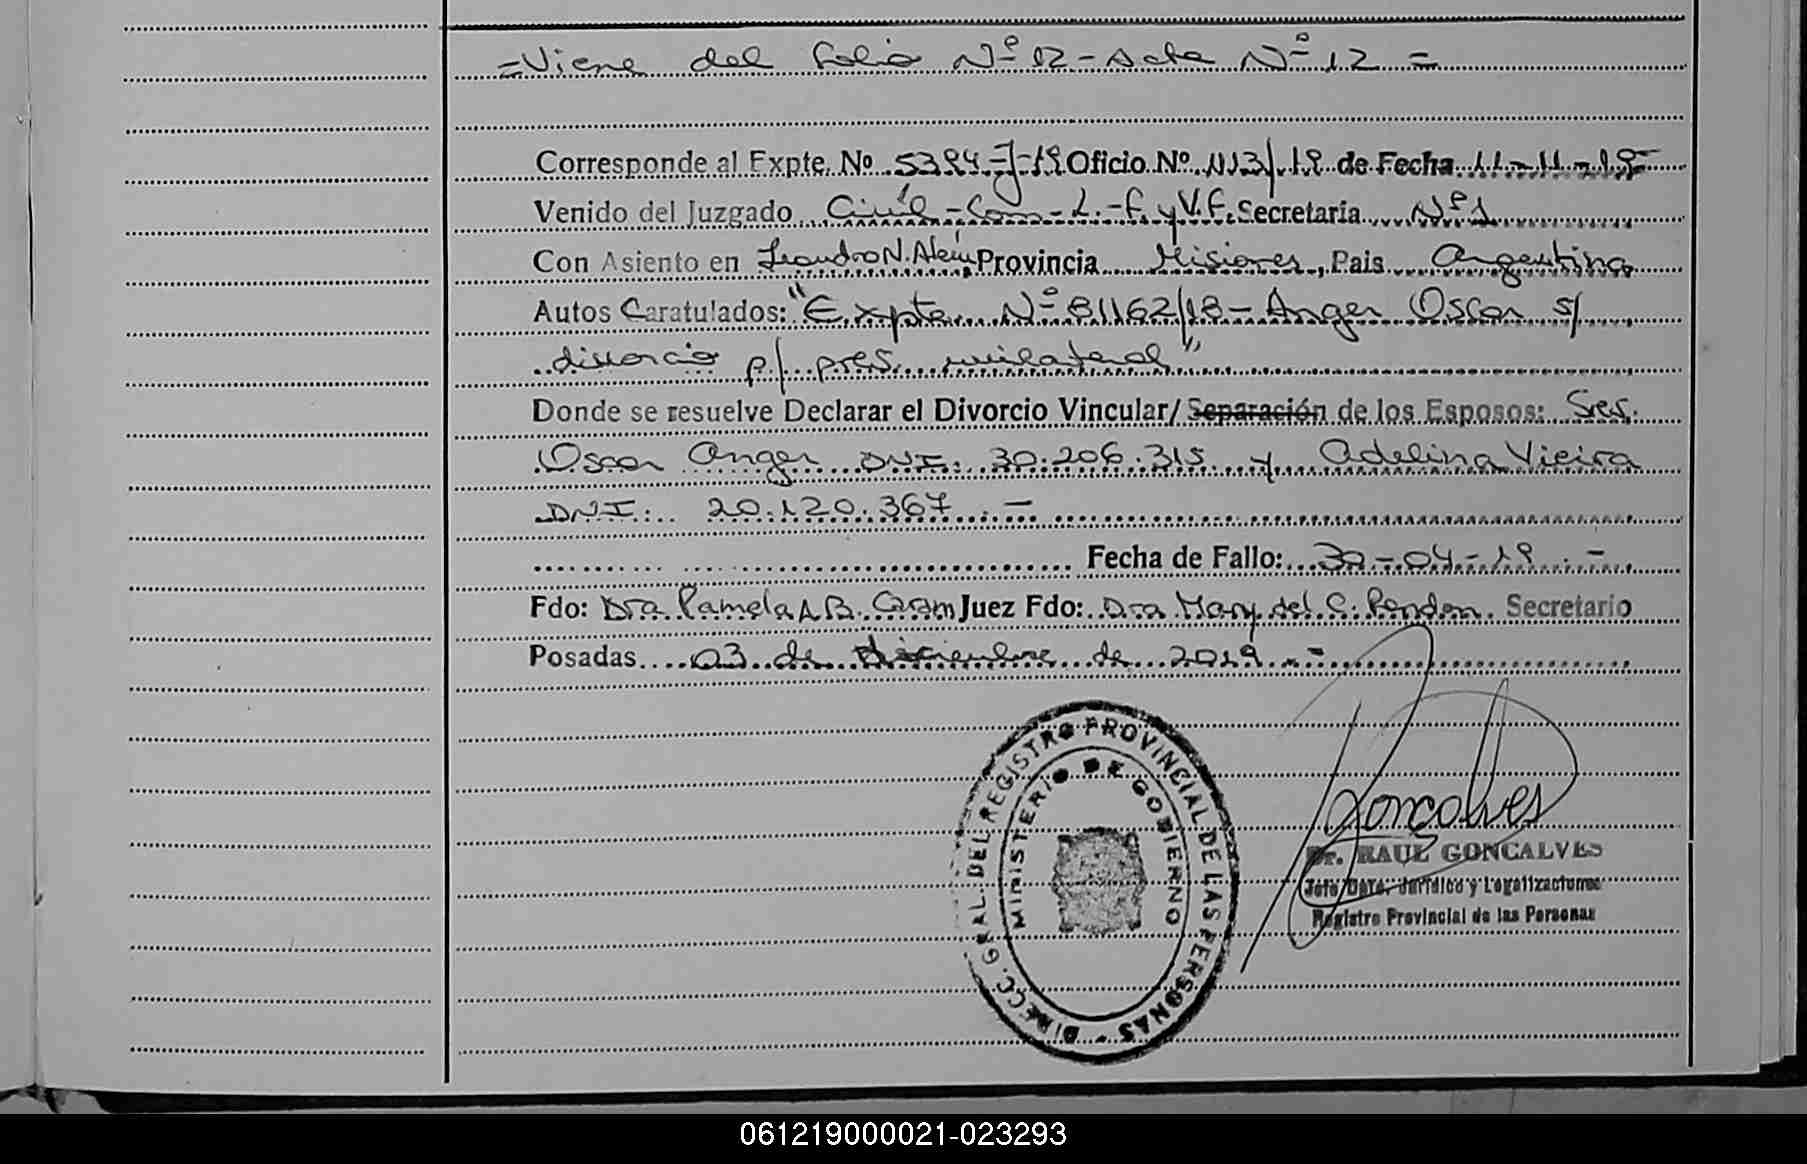 =Viene del folio Nº 12 - Acta Nº 12 =
Corresponde al Expte. Nº 5394-J-19 Oficio Nº 1113/19 de Fecha 11-11-19-
Venido del Juzgado Civil-Com-L.-F. y V.F. Secretaría Nº 1
Con Asiento en Leandro N. Alem, Provincia Misiones, Pais Argentina
Autos Caratulados: "Expte. Nº 81162/18 - Anger Oscar s/
divorcio p/ pres. unilateral"
Donde se resuelve Declarar el Divorcio Vincular/ Separación de los Esposos: Sres.
Oscar Anger DNI: 30.206.315 y Adelina Vieira
DNI: 20.120.367 . -
Fecha de Fallo: 30-04-19 . -
Fdo: Dra Pamela A B. Juez Fdo: Dra Mary del C. Secretario
Posadas 03 de diciembre de 2019 . -
DIRECC. GRAL. DEL REGISTRO PROVINCIAL DE LAS PERSONAS -
MINISTERIO DE GOBIERNO
Gonçalves
Dr. RAUL GONCALVES
Jefe Dpto. Jurídico y Legalizaciones
Registro Provincial de las Personas
061219000021-023293